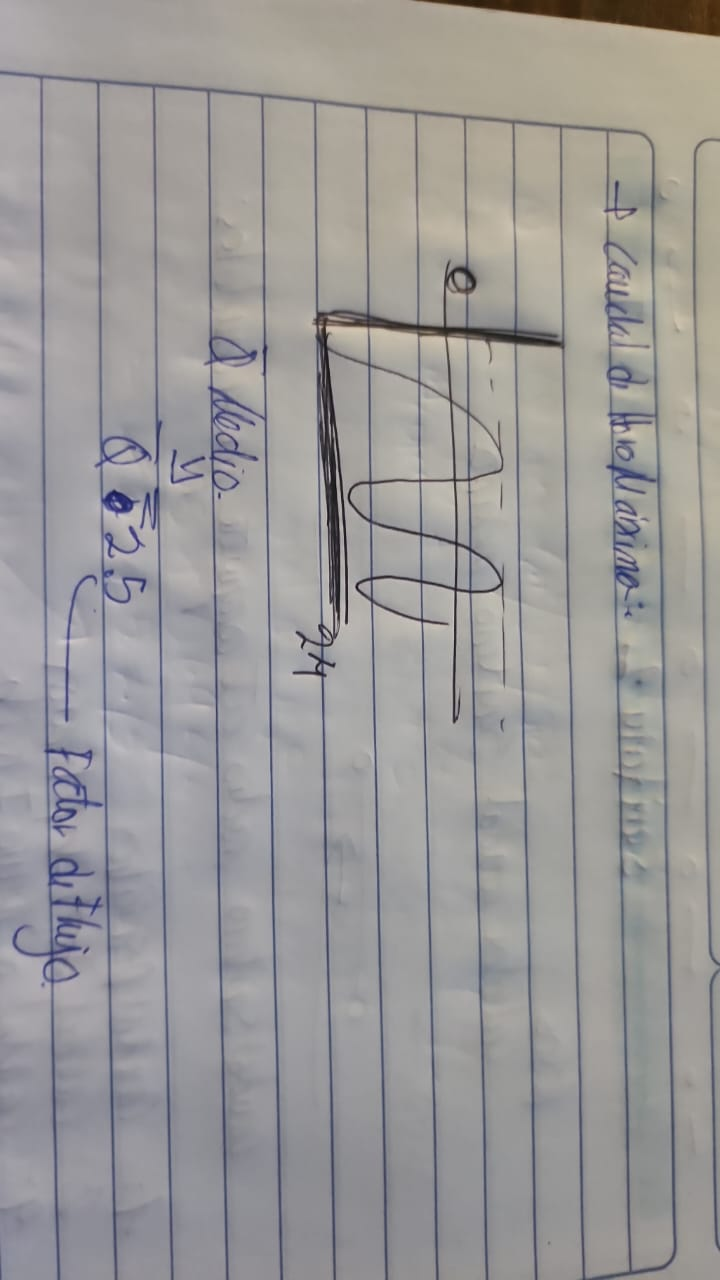 → Caudal de flujo Máximo:
Q
24
Q̄ Medio.
y
Q̄ = 2.5
Factor de flujo.